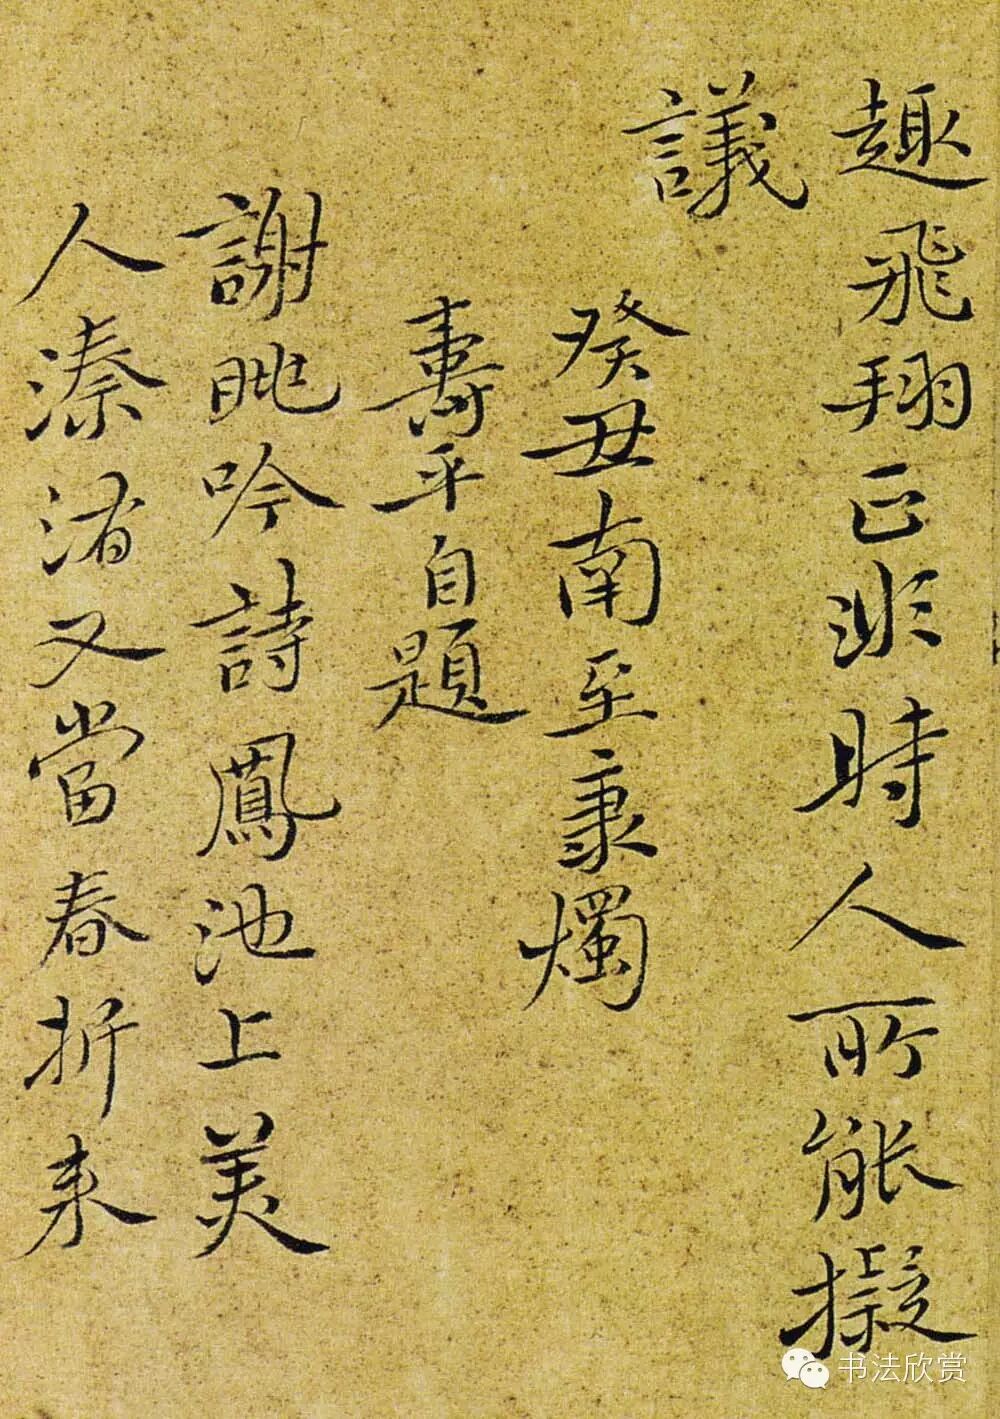 趣飛翔正非時人所能擬
議
癸丑南至秉燭
壽平自題
謝眺吟詩鳳池上美
人溱洧又當春折来
书法欣赏